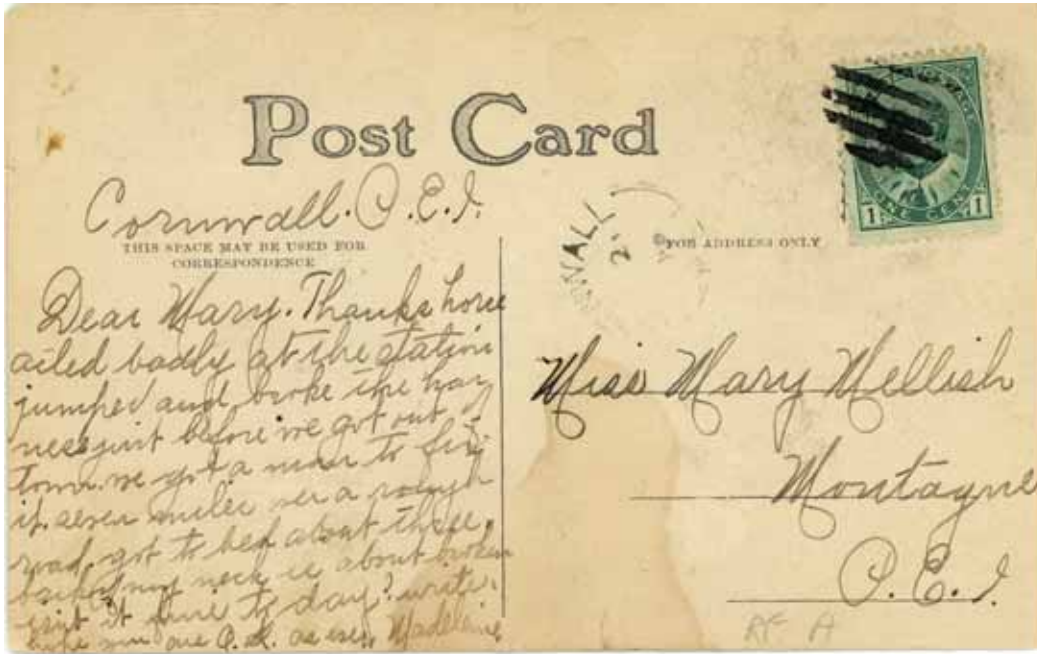 Post Card
Cornwall. P.E.I.
THIS SPACE MAY BE USED FOR
CORRESPONDENCE
Dear Mary. Thanks horse
acted badly at the station
jumped and broke the har
ness just before we got out
town. we got a man to fix
it. seven miles over a rough
road, got to bed about three.
back of my neck is about broken
isn't it fine to day? write.
hope you are O.K. as ever, Madeleine
WALL
FOR ADDRESS ONLY
ONE CENT
1 1
Miss Mary Mellish
Montague
P.E.I.
RF A